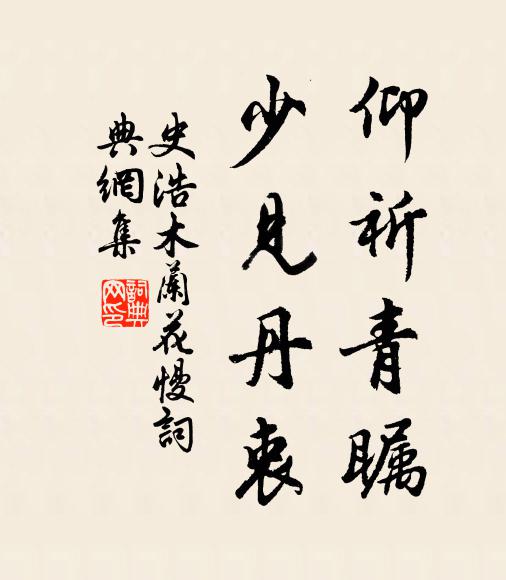 仰祈青瞩
少見丹衷
史浩木蘭花慢詞
典網集
詞典网印